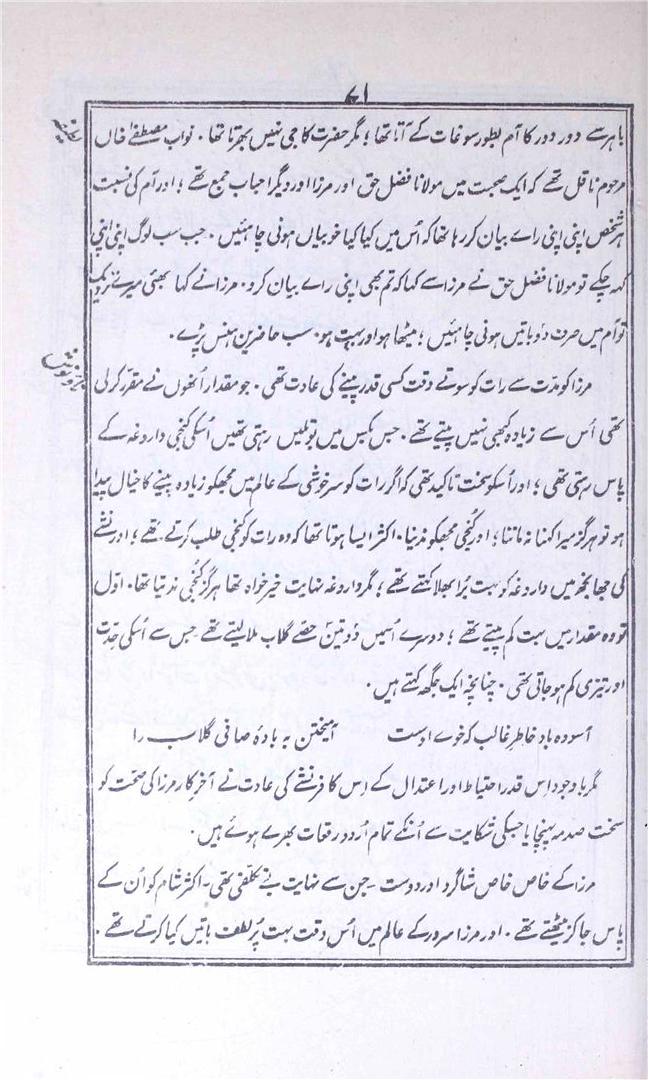 ۷۱
باہر سے دور دور کا آم بطور سوغات کے آتا تھا؛ مگر حضرت کا جی نہیں بھرتا تھا۔ نواب مصطفےٰ خاں
مرحوم ناقل تھے کہ ایک صحبت میں مولانا فضل حق اور مرزا اور دیگر احباب جمع تھے؛ اور آم کی نسبت
ہر شخص اپنی اپنی راے بیان کر رہا تھا کہ اُس میں کیا کیا خوبیاں ہونی چاہئیں۔ جب سب لوگ اپنی اپنی
کہہ چکے تو مولانا فضل حق نے مرزا سے کہا کہ تم بھی اپنی راے بیان کرو۔ مرزا نے کہا بھئی میرے نزدیک
تو آم میں صرف دو باتیں ہونی چاہئیں؛ میٹھا ہو اور بہت ہو۔ سب حاضرین ہنس پڑے۔
مرزا کو مدّت سے رات کو سوتے وقت کسی قدر پینے کی عادت تھی۔ جو مقدار اُنھوں نے مقرّر کر لی
تھی اُس سے زیادہ کبھی نہیں پیتے تھے۔ جس بکس میں بوتلیں رہتی تھیں اُسکی کُنجی داروغہ کے
پاس رہتی تھی؛ اور اُسکو سخت تاکید تھی کہ اگر رات کو سرخوشی کے عالم میں مجھکو زیادہ پینے کا خیال پیدا
ہو تو ہرگز میرا کہنا نہ ماننا؛ اور کُنجی مجھکو نہ دینا۔ اکثر ایسا ہوتا تھا کہ وہ رات کو کُنجی طلب کرتے تھے؛ اور نشے
کی جھانجھ میں داروغہ کو بہت بُرا بھلا کہتے تھے؛ مگر داروغہ نہایت خیرخواہ تھا ہرگز کُنجی نہ دیتا تھا۔ اوّل
تو وہ مقدار میں بہت کم پیتے تھے؛ دوسرے اُسمیں دو تین حصّے گلاب ملا لیتے تھے جس سے اُسکی حِدّت
اور تیزی کم ہو جاتی تھی۔ چنانچہ ایک جگھ کہتے ہیں۔
آسودہ باد خاطرِ غالب کہ خوے اوست آمیختن بہ بادۂ صافی گلاب را
مگر باوجود اِس قدر احتیاط اور اعتدال کے اِس کافر نشے کی عادت نے آخر کار مرزا کی صحّت کو
سخت صدمہ پہنچایا جسکی شکایت سے اُنکے تمام اُردو رقعات بھرے ہوئے ہیں۔
مرزا کے خاص خاص شاگرد اور دوست - جن سے نہایت بے تکلّفی تھی - اکثر شام کو اُن کے
پاس جا کر بیٹھتے تھے۔ اور مرزا سرور کے عالم میں اُس وقت بہت پُر لطف باتیں کیا کرتے تھے۔